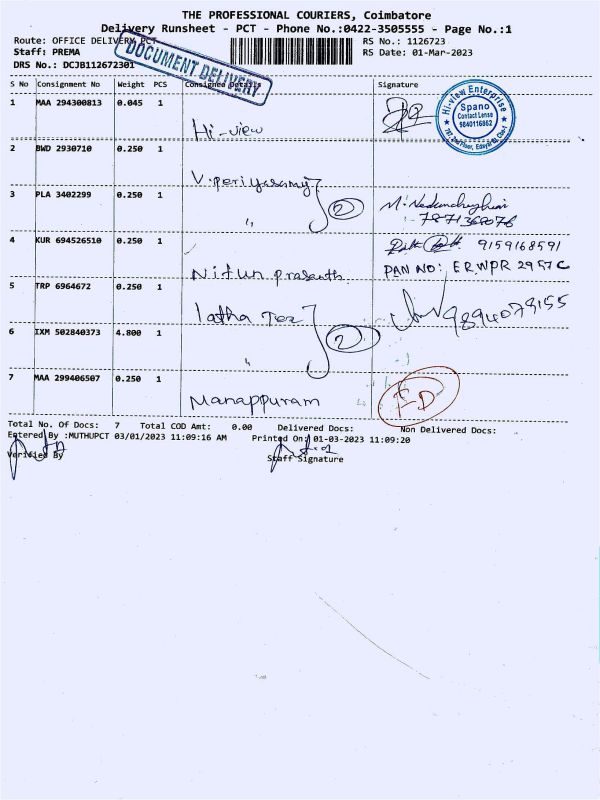 THE PROFESSIONAL COURIERS, Coimbatore
Delivery Runsheet - PCT - Phone No.:0422-3505555 - Page No.:1
Route: OFFICE DELIVERY PCT
RS No.: 1126723
Staff: PREMA
RS Date: 01-Mar-2023
DRS No.: DCJB112672301
DOCUMENT DELIVERY
S No Consignment No Weight PCS Consigned Details Signature
1 MAA 294300813 0.045 1
Hi-view
Hi-view Enterprise
Spano
Contact Lense
9840116862
2 BWD 2930710 0.250 1
V. periyasamy
2
3 PLA 3402299 0.250 1
"
7871368076
4 KUR 694526510 0.250 1
Nitun prasanth
9159168591
PAN NO: ERWPR 2957C
5 TRP 6964672 0.250 1
latha Tex
9894079155
2
6 IXM 502840373 4.800 1
"
7 MAA 299406507 0.250 1
Manappuram
Total No. Of Docs: 7 Total COD Amt: 0.00 Delivered Docs: Non Delivered Docs:
Entered By :MUTHUPCT 03/01/2023 11:09:16 AM Printed On: 01-03-2023 11:09:20
Verified By
Staff Signature